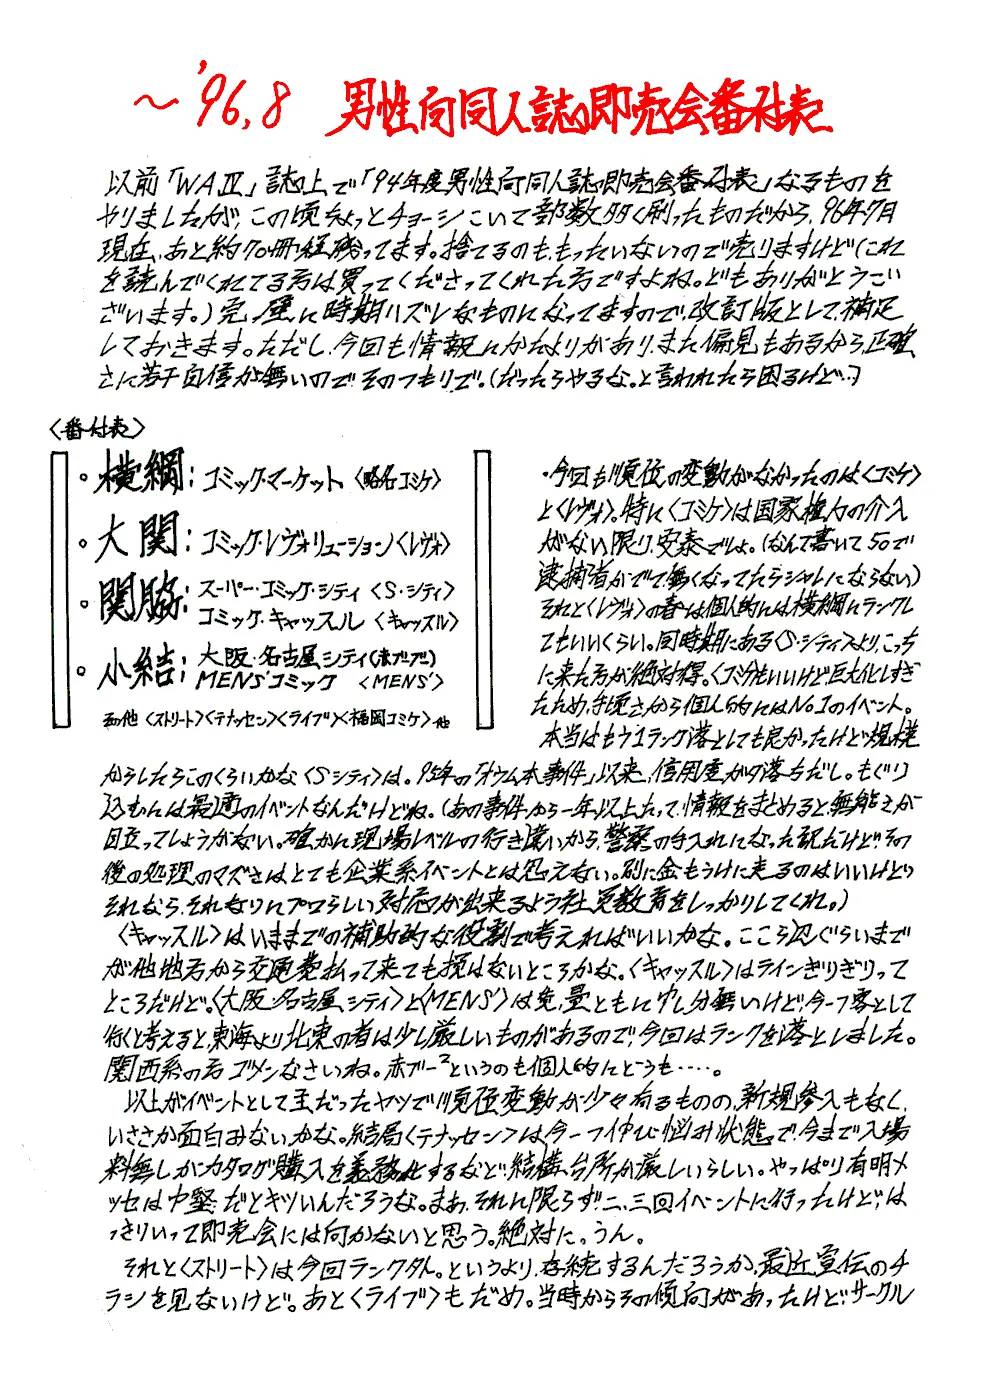 ～'96.8 男性向同人誌即売会番付表
以前「WAⅣ」誌上で「'94年度男性向同人誌即売会番付表」なるものを
やりましたが、この頃ちょっとチョーシこいて部数多く刷ったものだから、96年7月
現在、あと約70冊程残ってます。捨てるのももったいないので売りますけど（これ
を読んでくれてる方は買ってくださってくれた方ですよね。どもありがとうござ
ざいます。）完璧に時期ハズレなものになってますので、改訂版として、補足
しておきます。ただし、今回も情報にかたよりがあり、また偏見もあるから、正確
さに若干自信が無いのでそのつもりで。（だったらやるな。と言われたら困るけど…）
〈番付表〉
・横綱：コミック・マーケット〈略名コミケ〉
。大関：コミック・レヴォリューション〈レヴォ〉
・関脇：スーパー・コミック・シティ〈S・シティ〉
コミック・キャッスル〈キャッスル〉
・小結：大阪・名古屋シティ（赤ブーブー）
MENS'コミック〈MENS'〉
その他〈ストリート〉〈テナッセン〉〈ライブ〉〈福岡コミケ〉他
・今回も順位の変動がなかったのは〈コミケ〉
と〈レヴォ〉。特に〈コミケ〉は国家権力の介入
がない限り、安泰でしょ。（なんて書いて50で
逮捕者がでて無くなってたらシャレにならない）
それと〈レヴォ〉の春は個人的には横綱にランクし
てもいいくらい。同時期にある〈S・シティ〉より、こっち
に来た方が絶対得。〈コミケ〉もいいけど巨大化しすぎ
たため、手頃さから個人的にはNo.1のイベント。
本当はもう1ランク落としても良かったけど規模
からしたらこのくらいかな〈Sシティ〉は。95年の「オウム本事件」以来、信用度がタ落ちだし。もぐり
込むんは最適のイベントなんだけどね。（あの事件から一年以上たって、情報をまとめると、無能さが
目立ってしょうがない。確かに現場レベルの行き違いから、警察の手入れになった訳だけど、その
後の処理のマズさはとても企業系イベントとは思えない。別に金もうけに走るのはいいけど
それなら、それなりにプロらしい対応が出来るよう社員教育をしっかりしてくれ。）
〈キャッスル〉はいままでの補助的な役割で考えればいいかな。ここら辺ぐらいまで
が他地方から交通費払って来ても損はないところかな。〈キャッスル〉はラインぎりぎりって
ところだけど。〈大阪・名古屋シティ〉と〈MENS'〉は質、量ともに申し分無いけど、今一つ客として
行くと考えると、東海より北東の者は少し厳しいものがあるので、今回はランクを落としました。
関西系の方ゴメンなさいね。赤ブー²というのも個人的にどうも‥‥。
以上がイベントとして主だったヤツで順位変動が少々有るものの、新規参入もなく、
いささか面白みないかな。結局〈テナッセン〉は、今一つ伸び悩み状態で、今まで入場
料無しがカタログ購入を義務化するなど、結構、台所が厳しいらしい。やっぱり有明メ
ッセは中堅だとキツいんだろうな。まあ、それに限らず、二、三回イベントに行ったけど、は
っきりいって即売会には向かないと思う。絶対に。うん。
それと〈ストリート〉は今回ランク外。というより、存続するんだろうか、最近、宣伝のチ
ラシを見ないけど。あと〈ライブ〉もだめ。当時からその傾向があったけど、サークル